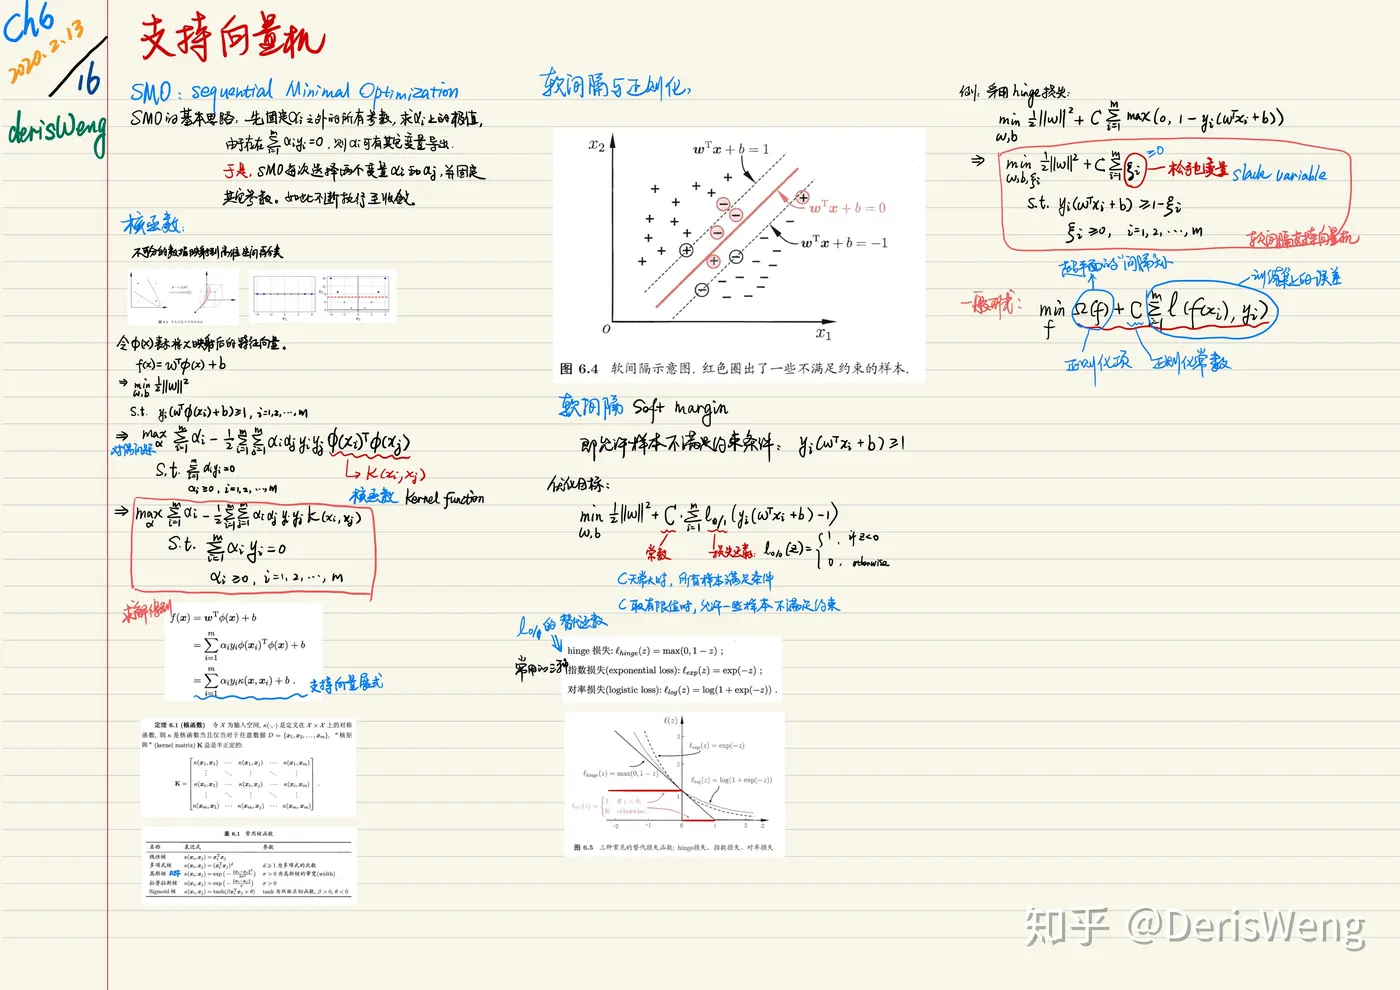 Ch6
2020.2.13
/16
derisWeng
支持向量机
SMO: sequential Minimal Optimization
SMO的基本思路:先固定αi之外的所有参数,求αi上的极值,
由于存在 Σ_{i=1}^m αiyi=0, 则αi可有其它变量导出.
于是, SMO每次选择两个变量αi和αj, 并固定
其它参数。如此不断执行至收敛。
核函数:
不可分的数据映射到高维空间再分类
令ϕ(x)表示将x映射后的特征向量。
f(x)=wᵀϕ(x)+b
⇒ min_{w,b} ½||w||²
s.t. yi(wᵀϕ(xi)+b)≥1, i=1,2,…,m
⇒ max_α Σ_{i=1}^m αi - ½ Σ_{i=1}^m Σ_{j=1}^m αiαjyiyj ϕ(xi)ᵀϕ(xj)
对偶问题
s.t. Σ_{i=1}^m αiyi=0
↳ K(xi,xj)
αi≥0, i=1,2,…,m
核函数 Kernel function
⇒ max_α Σ_{i=1}^m αi - ½ Σ_{i=1}^m Σ_{j=1}^m αiαjyiyj K(xi,xj)
s.t. Σ_{i=1}^m αiyi=0
αi≥0, i=1,2,…,m
求解得到
f(x) = wᵀϕ(x) + b
= Σ_{i=1}^m αiyiϕ(xi)ᵀϕ(x) + b
= Σ_{i=1}^m αiyiκ(x, xi) + b .
支持向量展式
定理 6.1 (核函数) 令 X 为输入空间, κ(·,·) 是定义在 X × X 上的对称
函数, 则 κ 是核函数当且仅当对于任意数据 D = {x1, x2, . . . , xm}, “核矩
阵”(kernel matrix) K 总是半正定的:
κ(x1, x1) ⋯ κ(x1, xj) ⋯ κ(x1, xm)
⋮ ⋱ ⋮ ⋱ ⋮
K = κ(xi, x1) ⋯ κ(xi, xj) ⋯ κ(xi, xm) .
⋮ ⋱ ⋮ ⋱ ⋮
κ(xm, x1) ⋯ κ(xm, xj) ⋯ κ(xm, xm)
表 6.1 常用核函数
名称 表达式 参数
线性核 κ(xi, xj) = xiᵀxj
多项式核 κ(xi, xj) = (xiᵀxj)^d d ⩾ 1 为多项式的次数
高斯核 RBF κ(xi, xj) = exp(−||xi−xj||²/2σ²) σ > 0 为高斯核的带宽(width)
拉普拉斯核 κ(xi, xj) = exp(−||xi−xj||/σ) σ > 0
Sigmoid 核 κ(xi, xj) = tanh(βxiᵀxj + θ) tanh 为双曲正切函数, β > 0, θ < 0
软间隔与正则化,
x2
wᵀx + b = 1
wᵀx + b = 0
wᵀx + b = −1
O
x1
图 6.4 软间隔示意图. 红色圈出了一些不满足约束的样本.
软间隔 Soft margin
即允许样本不满足约束条件: yi(wᵀxi+b)≥1
优化目标:
min_{w,b} ½||w||² + C·Σ_{i=1}^m l0/1(yi(wᵀxi+b)-1)
常数
损失函数: l0/1(z)= { 1, if z<0
0, otherwise
C无穷大时, 所有样本满足条件
C取有限值时, 允许一些样本不满足约束
l0/1的替代函数
常用的三种
hinge 损失: ℓhinge(z) = max(0, 1 − z) ;
指数损失(exponential loss): ℓexp(z) = exp(−z) ;
对率损失(logistic loss): ℓlog(z) = log(1 + exp(−z)) .
ℓ(z)
3
ℓexp(z) = exp(−z)
2
ℓhinge(z) = max(0, 1 − z)
ℓlog(z) = log(1 + exp(−z))
1
ℓ0/1(z) = { 1, if z < 0;
0, otherwise.
-2 -1 0 1 2 z
图 6.5 三种常见的替代损失函数: hinge损失、指数损失、对率损失
例: 采用hinge损失:
min_{w,b} ½||w||² + C Σ_{i=1}^m max(0, 1-yi(wᵀxi+b))
⇒ min_{w,b,ξi} ½||w||² + C Σ_{i=1}^m ξi
≥0
松弛变量 slack variable
s.t. yi(wᵀxi+b) ≥1-ξi
ξi ≥0, i=1,2,…,m
软间隔支持向量机
超平面的"间隔"大小
训练集上的误差
一般形式:
min_f Ω(f) + C Σ_{i=1}^m l(f(xi), yi)
正则化项
正则化常数
知乎 @DerisWeng